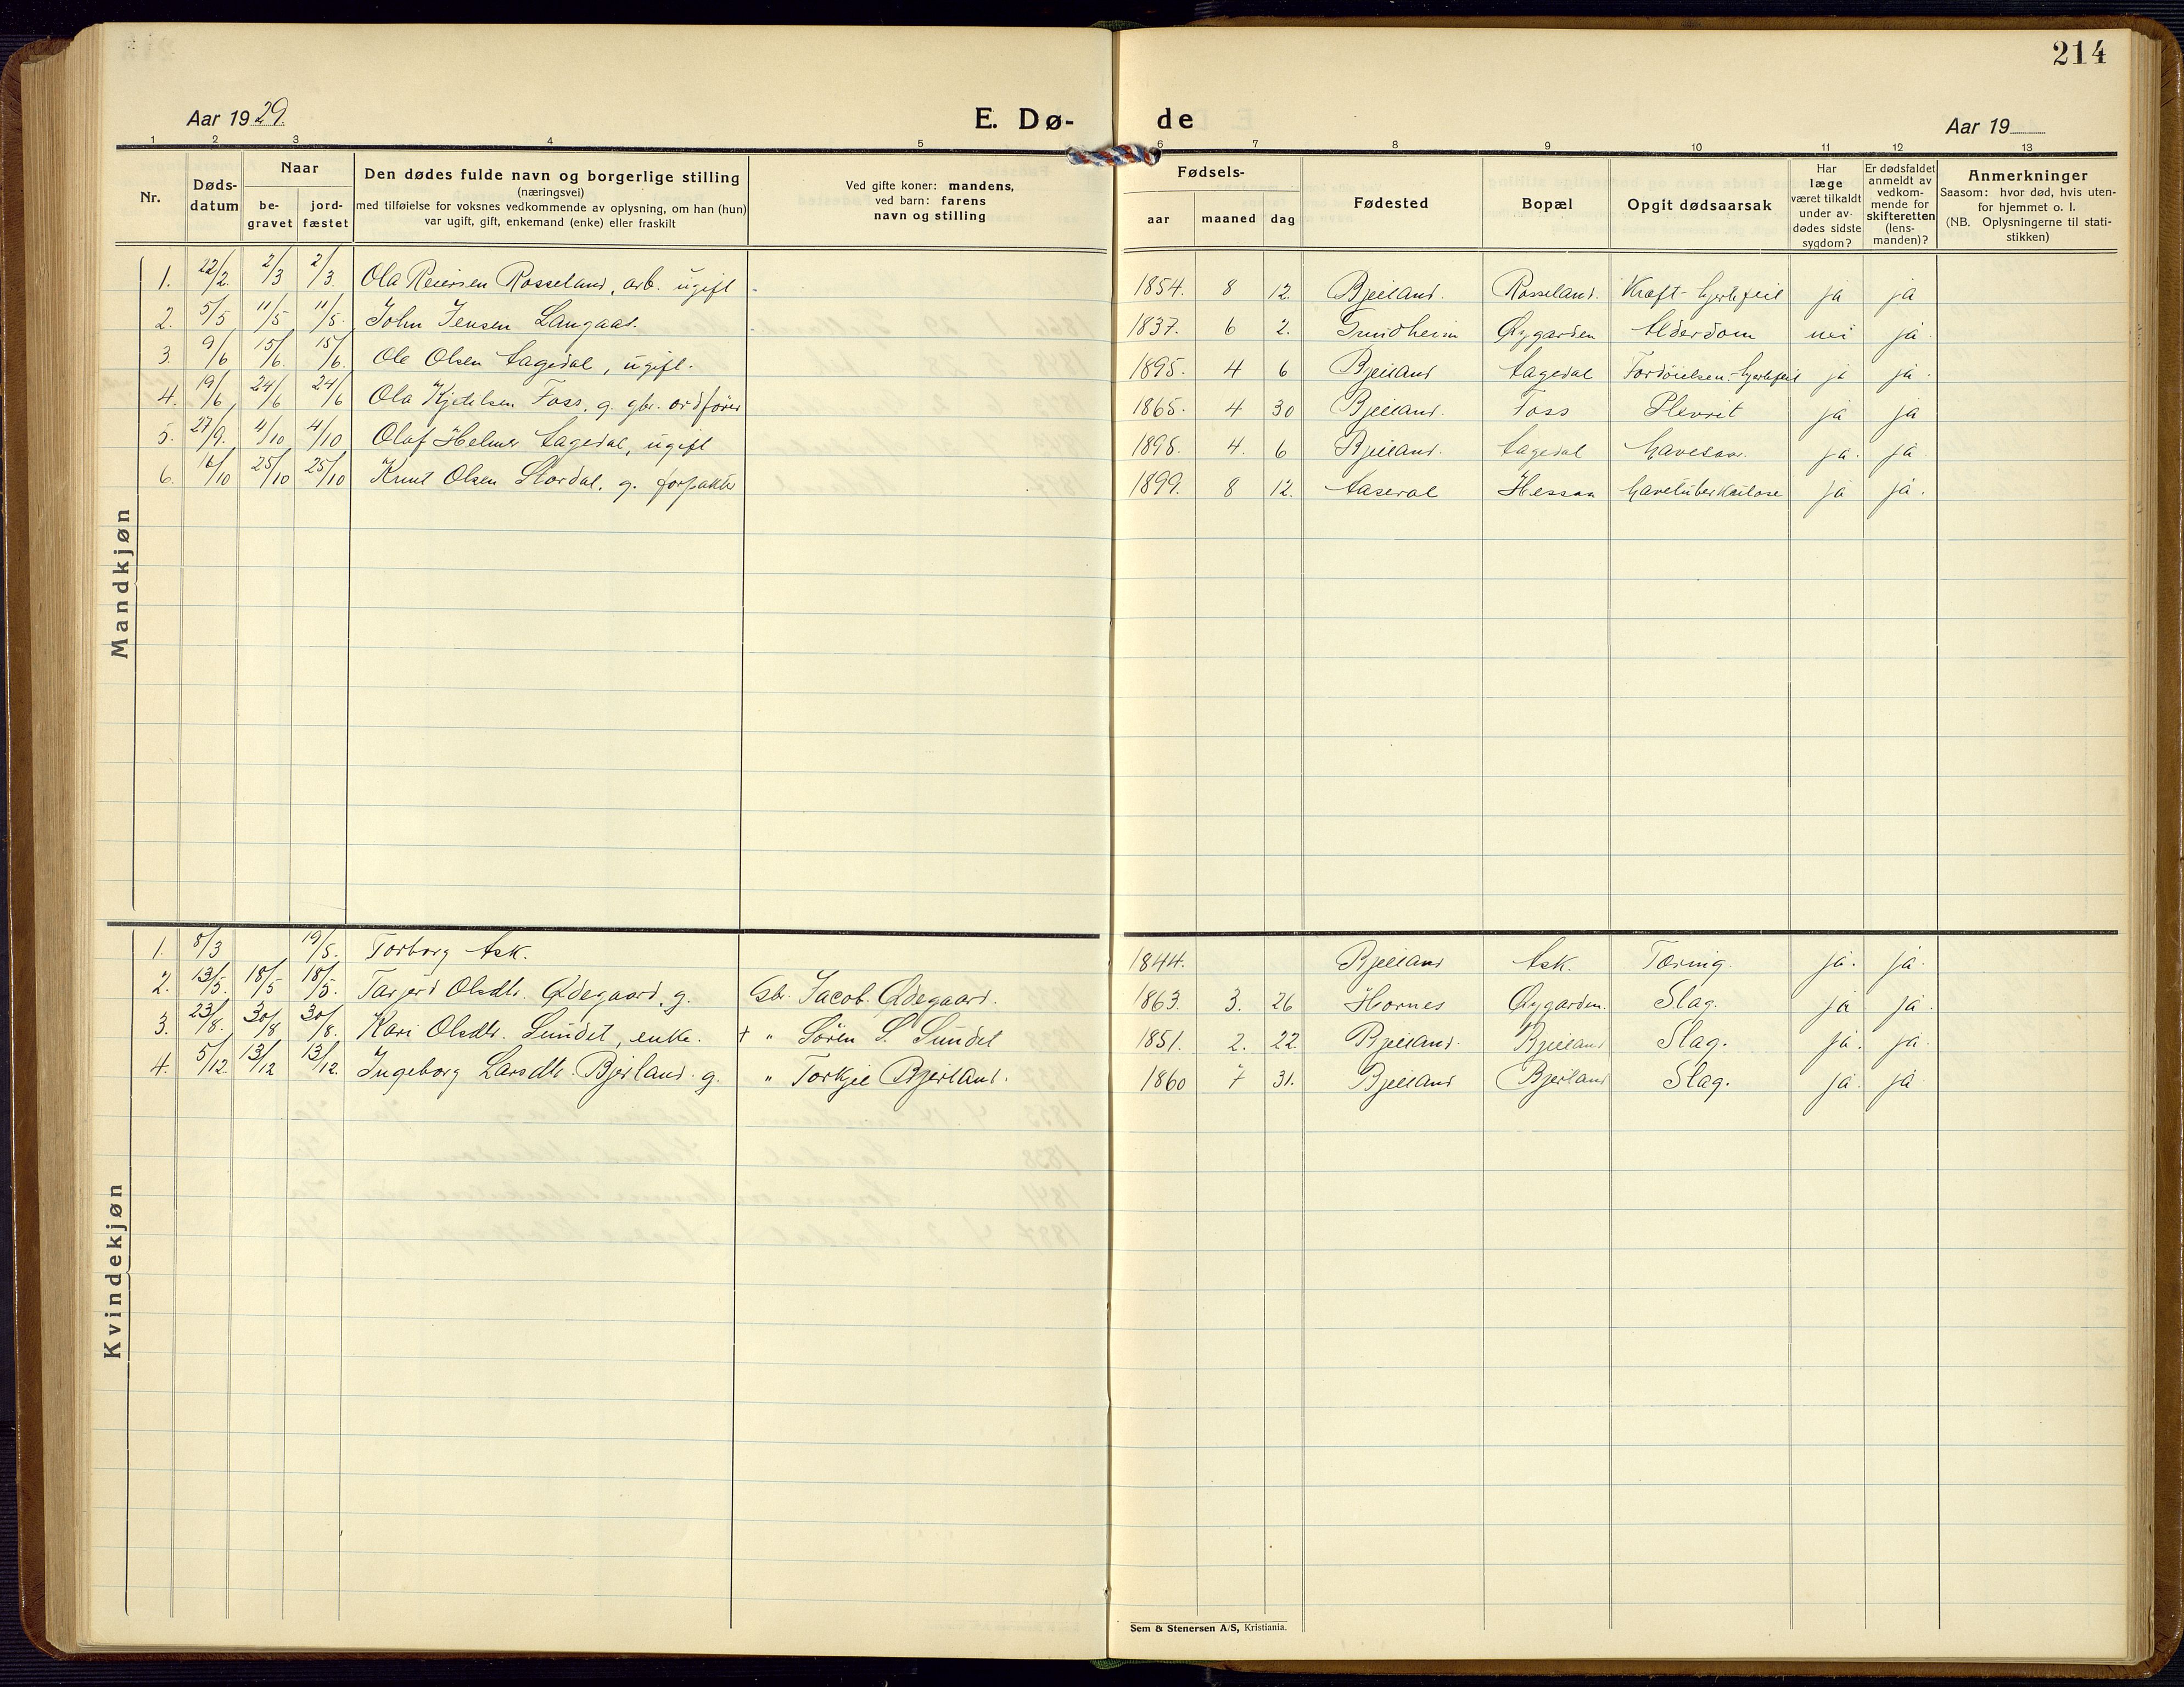 214
Aar 1929.
E. Dø-
de
Aar 19
1 2 3 4 5 6 7 8 9 10 11 12 13
Nr.
Døds-
datum
Naar
be-
gravet
jord-
fæstet
Den dødes fulde navn og borgerlige stilling
(næringsvei)
med tilføielse for voksnes vedkommende av oplysning, om han (hun)
var ugift, gift, enkemand (enke) eller fraskilt
Ved gifte koner: mandens,
ved barn: farens
navn og stilling
Fødsels-
aar maaned dag
Fødested
Bopæl
Opgit dødsaarsak
Har
læge
været tilkaldt
under av-
dødes sidste
sygdom?
Er dødsfaldet
anmeldt av
vedkom-
mende for
skifteretten
(lens-
manden)?
Anmerkninger
Saasom: hvor død, hvis uten-
for hjemmet o. l.
(NB. Oplysningerne til stati-
stikken)
Mandkjøn
1. 22/2. 2/3 2/3. Ola Reiersen Rosseland, arb. ugift 1854. 8 12. Bjelland. Rosseland. Kræft-hjertefeil ja ja
2. 5/5 11/5 11/5. John Jensen Langaas. 1837. 6 2. Grindheim Øygarden Alderdom nei ja.
3. 9/6 15/6. 15/6. Ole Olsen Aagedal, ugift. 1895. 4 6 Bjelland Aagedal Fordøielsen.-hjertefeil ja ja.
4. 19/6 24/6 24/6 Ola Kjetilsen Foss, g. gbr. ordfører 1865. 4 30 Bjelland. Foss Plevrit ja ja
5. 27/9. 4/10 4/10 Olaf Helmer Aagedal, ugift 4. 6 Bjelland. Aagedal Mavesaar. ja. ja
6. 25/10 25/10 Knut Olsen Stordal. g. forpakter 1899. 8 12. Aaseral Hessaa ja ja.
Kvindekjøn
1. 8/3 19/5. Torborg Ask. 1844. Bjelland Ask. Tæring. ja. ja.
2. 13/5. 18/5 18/5. Tarjerd Olsdtr. Ødegaard, g. Gbr. Jacob Ødegaard. 1863. 3. 26 Hornes Øygarden. Slag. ja ja.
3. 23/8. 30/8 30/8. Kari Olsdtr. Sundet, enke. + " Søren S. Sundet 1851. 2. 22. Bjelland. Bjelland Slag. ja. ja.
4. 5/12 13/12 13/12. Ingeborg Larsdtr. Bjerland. g. " Torkjel Bjerland. 1860 7 31. Bjelland Bjerland Slag. ja. ja
Sem & Stenersen A/S, Kristiania.